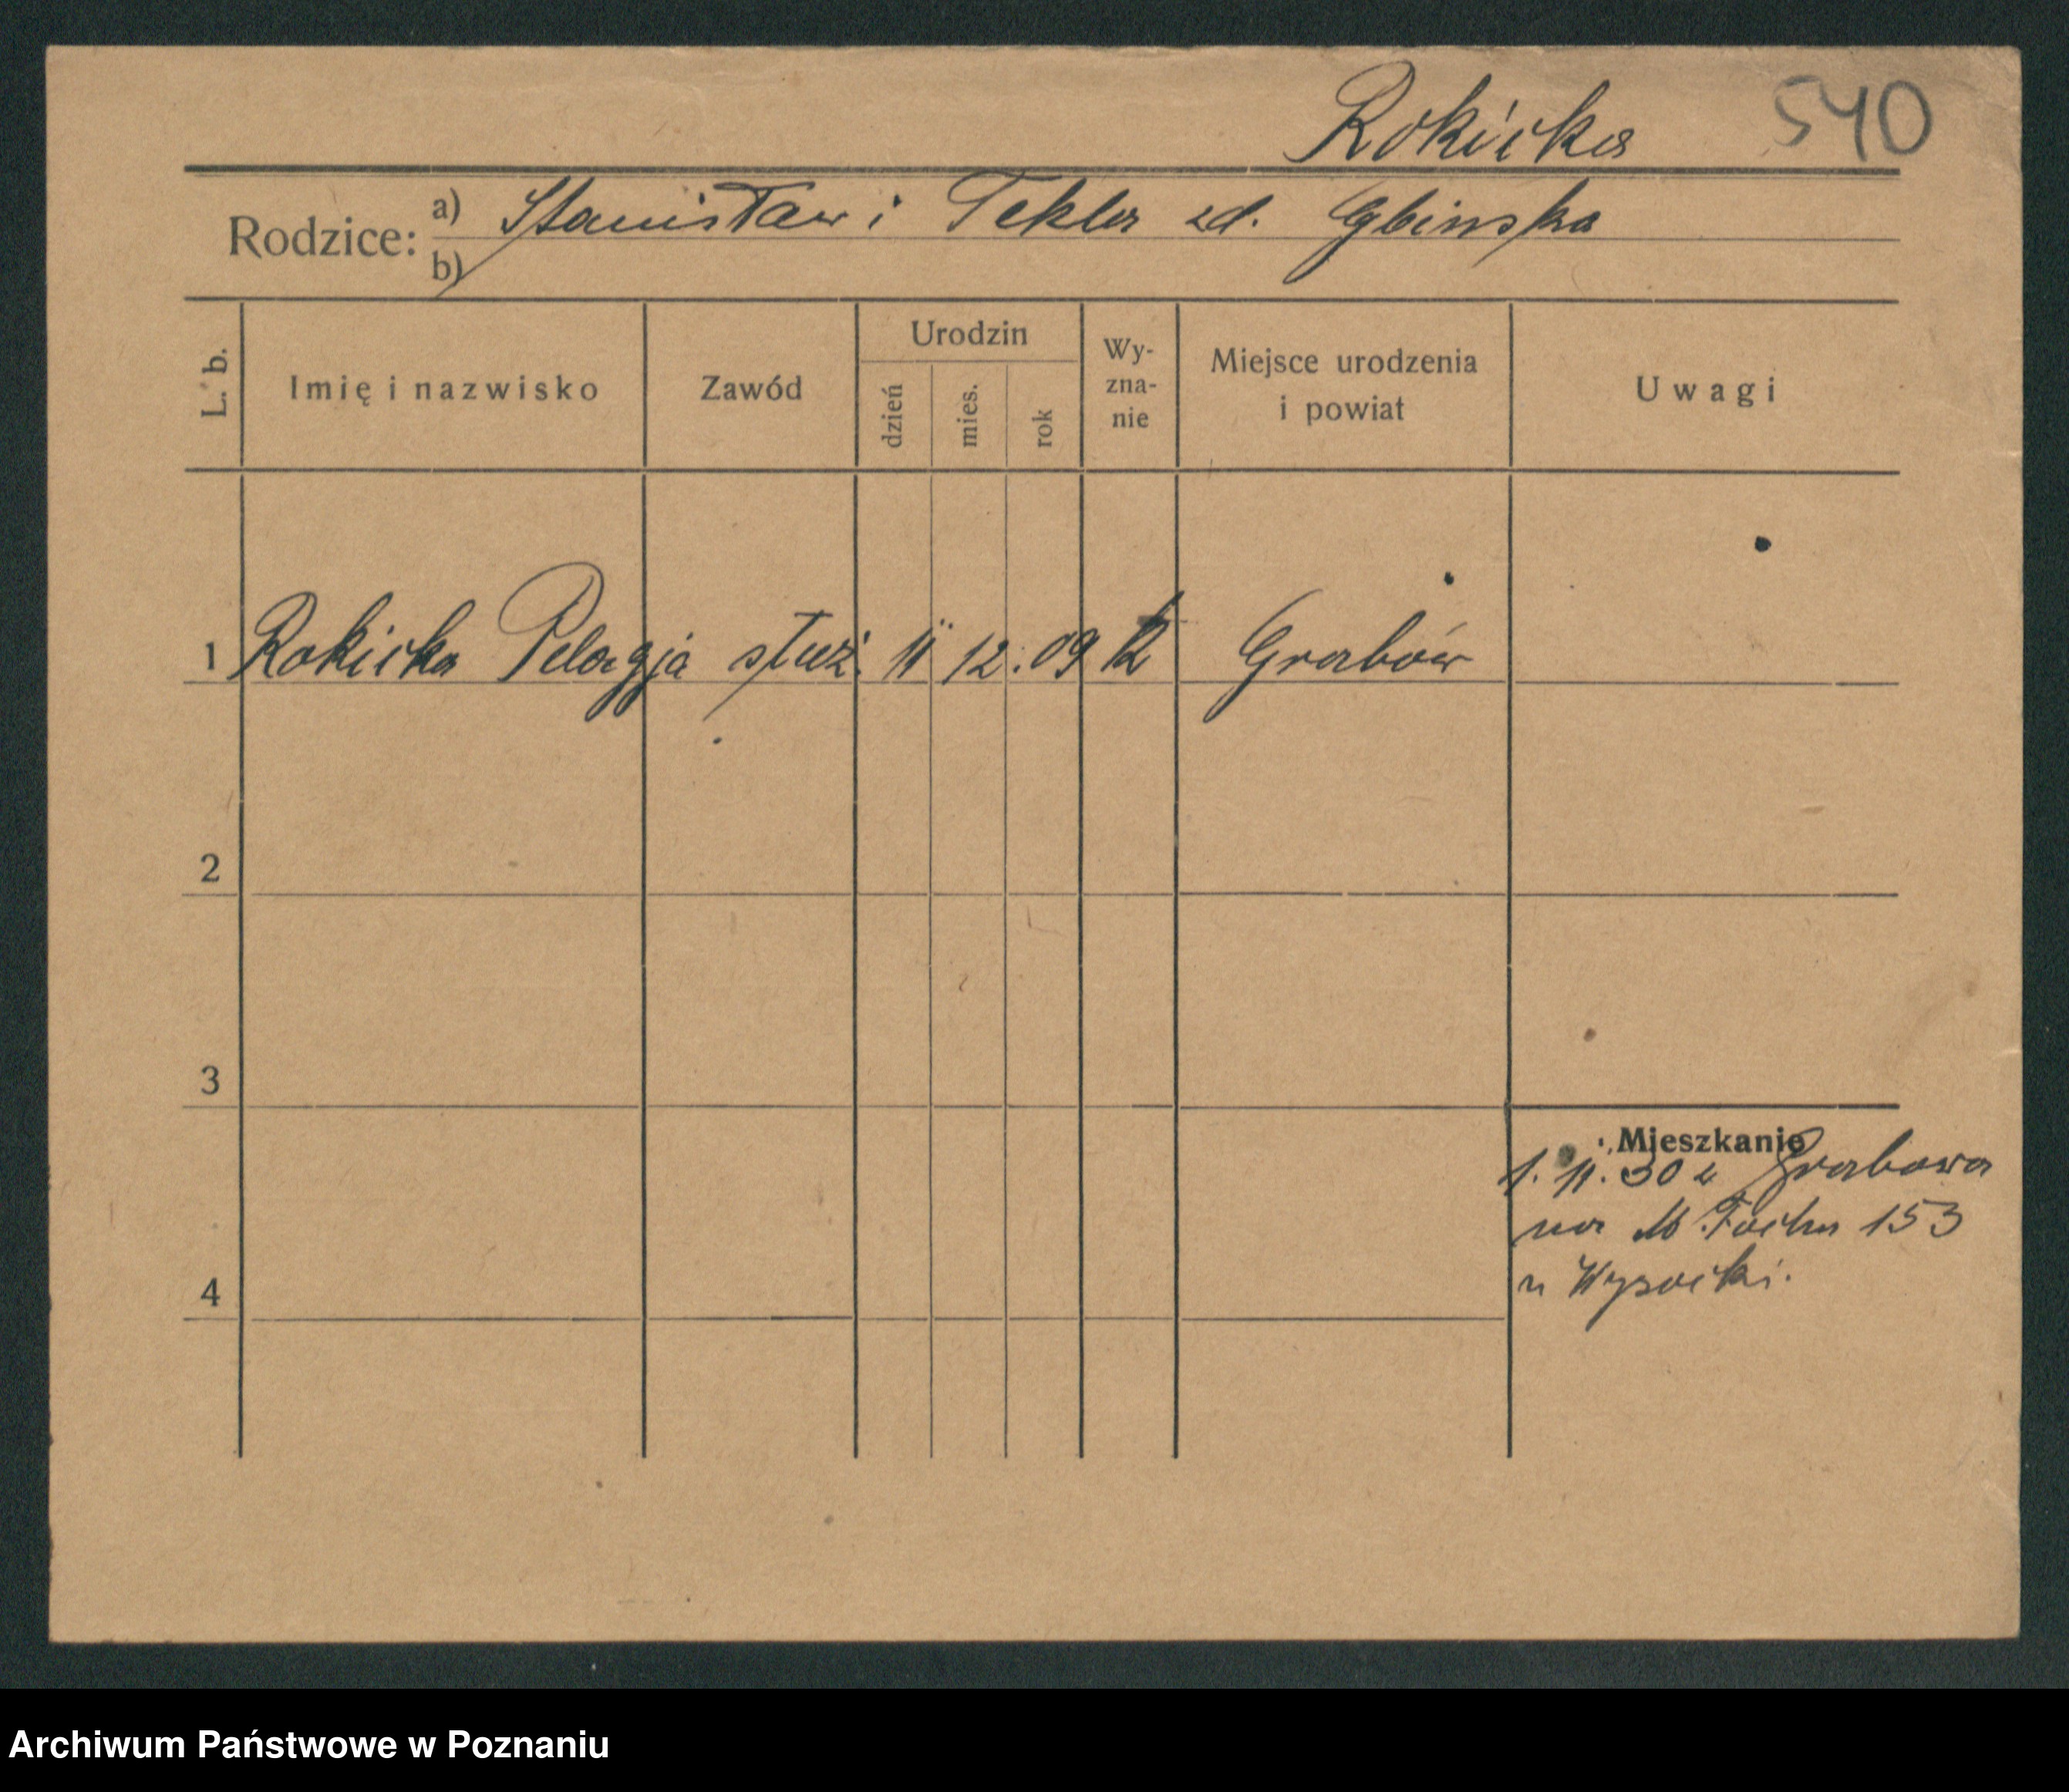 Rokicka 540
Rodzice: a) Stanisław i Tekla zd. Gbinska
b)
L. b. Imię i nazwisko Zawód Urodzin dzień mies. rok Wy-zna-nie Miejsce urodzenia i powiat Uwagi
1 Rokicka Pelagja służ. 11 12. 09 k Grabów
2
3
Mieszkanie
1. 11. 30 z Grabowa
na M. Focha 153
4
u Wysocki.
Archiwum Państwowe w Poznaniu